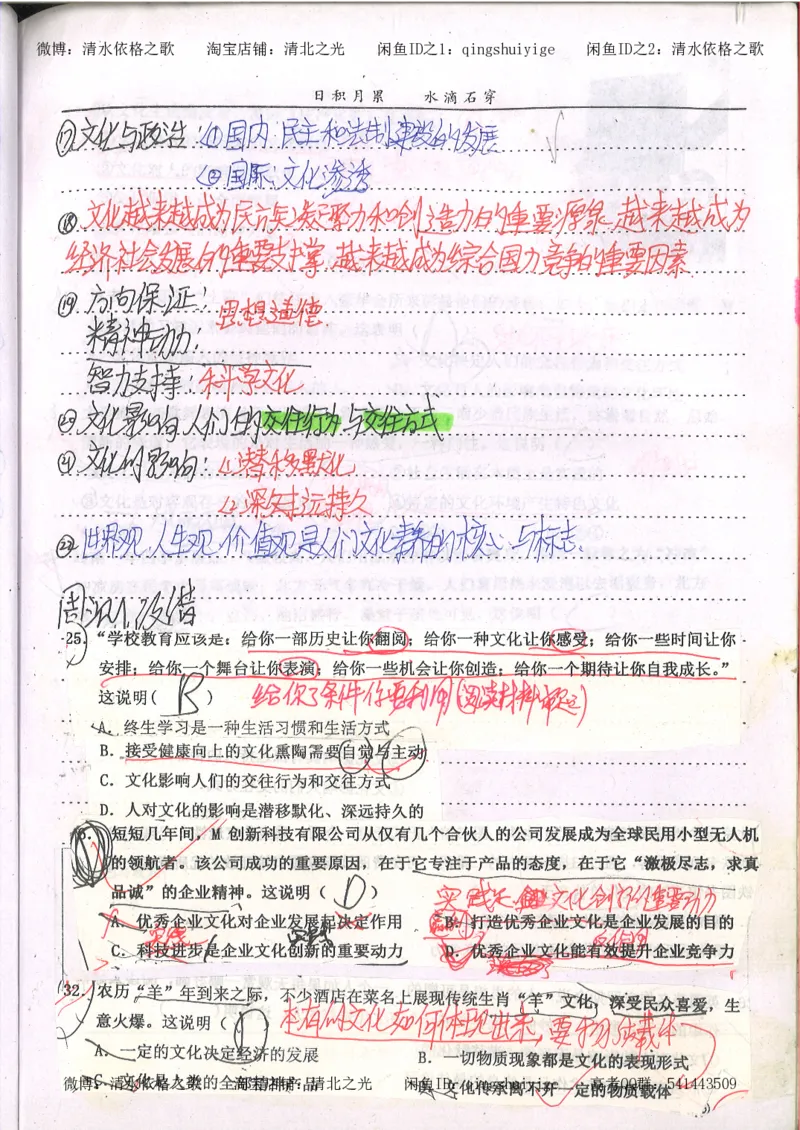 微博：清水依格之歌 淘宝店铺：清北之光 闲鱼ID之1：qingshuiyige 闲鱼ID之2：清水依格之歌
日积月累 水滴石穿
⑰文化与政治：①国内：民主和法制建设的发展
②国际：文化渗透
⑱文化越来越成为民族凝聚力和创造力的重要源泉、越来越成为
经济社会发展的重要支撑、越来越成为综合国力竞争的重要因素
⑲方向保证：思想道德
精神动力：
智力支持：科学文化
⑳文化影响人们的交往行为与交往方式
㉑文化的影响：①潜移默化
②深远持久
㉒世界观、人生观、价值观是人们文化素养的核心与标志。
25.“学校教育应该是：给你一部历史让你翻阅；给你一种文化让你感受；给你一些时间让你
安排；给你一个舞台让你表演；给你一些机会让你创造；给你一个期待让你自我成长。”
这说明( B ) 给你了条件你要利用（
A．终生学习是一种生活习惯和生活方式
B．接受健康向上的文化熏陶需要自觉与主动
C．文化影响人们的交往行为和交往方式
D．人对文化的影响是潜移默化、深远持久的
短短几年间，M 创新科技有限公司从仅有几个合伙人的公司发展成为全球民用小型无人机
的领航者。该公司成功的重要原因，在于它专注于产品的态度，在于它“激极尽志，求真
品诚”的企业精神。这说明（ D ） 实践是文化创新的重要动力
A．优秀企业文化对企业发展起决定作用 B．打造优秀企业文化是企业发展的目的
C．科技进步是企业文化创新的重要动力 D．优秀企业文化能有效提升企业竞争力
32．农历“羊”年到来之际，不少酒店在菜名上展现传统生肖“羊”文化，深受民众喜爱，生
意火爆。这说明（ D ） 本有的文化如何体现出来，要物质载体
A．一定的文化决定经济的发展 B．一切物质现象都是文化的表现形式
C．文化是人类的全部精神产品 D．文化传承离不开一定的物质载体
微博：清水依格之歌 淘宝店铺：清北之光 闲鱼ID：qingshuiyige 高考QQ群：541443509